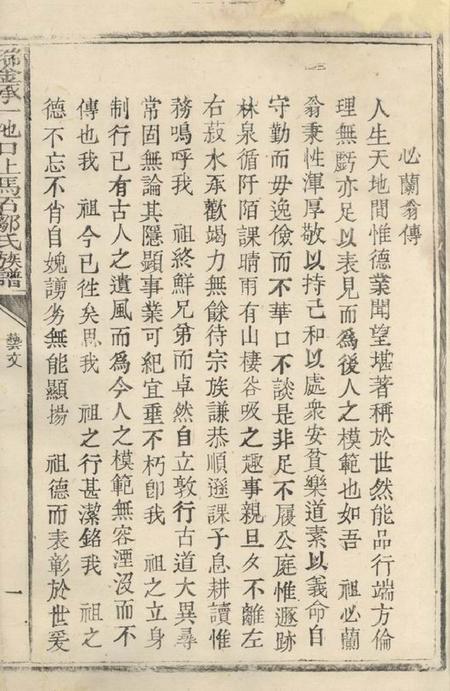 必蘭翁傳
人生天地間惟德業聞望堪著稱於世然能品行端方倫
理無虧亦足以表見而為後人之模範也如吾　祖必蘭
翁秉性渾厚敬以持己和以處衆安貧樂道素以義命自
守勤而毋逸儉而不華口不談是非足不履公庭惟遯跡
林泉循阡陌課晴雨有山棲谷吸之趣事親旦夕不離左
右菽水承歡竭力無餘待宗族謙恭順遜課子息耕讀惟
務嗚呼我　祖終鮮兄弟而卓然自立敦行古道大異尋
常固無論其隱顯事業可紀宜垂不朽卽我　祖之立身
制行已有古人之遺風而為今人之模範無容湮沒而不
傳也我　祖今已往矣思我　祖之行甚潔銘我　祖之
德不忘不肖自媿謭劣無能顯揚　祖德而表彰於世爰
瑞金承一池口上馬石鄒氏族譜
藝文
一